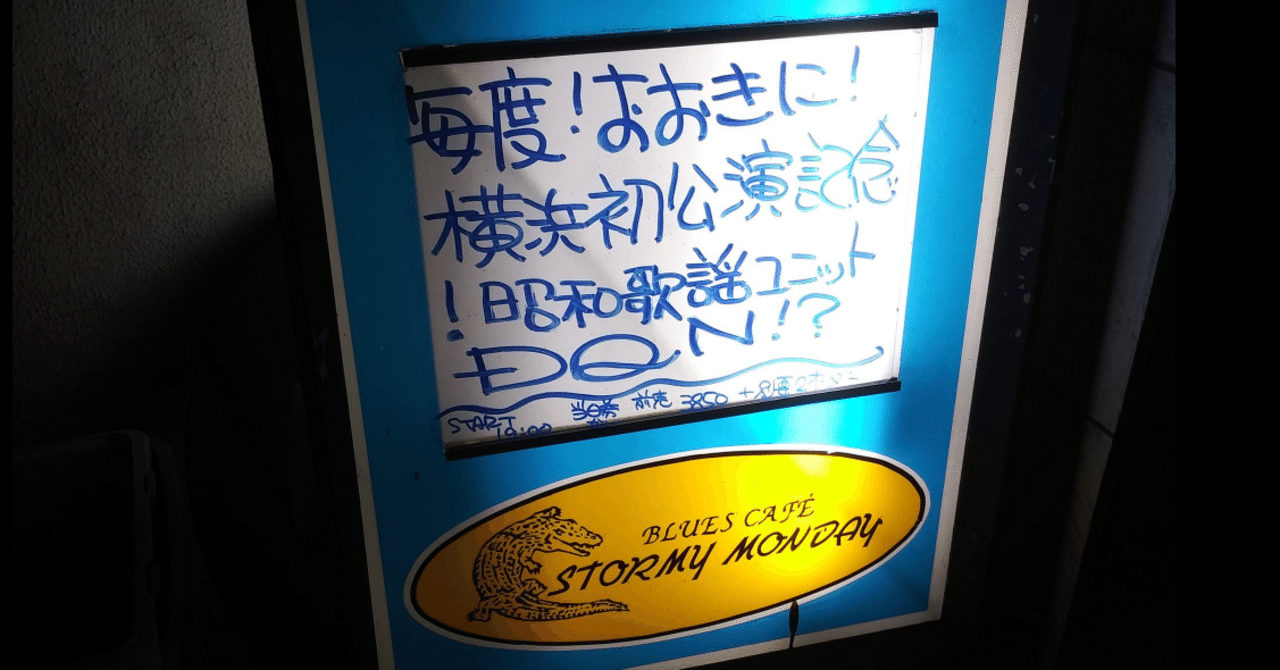 毎度！おおきに！
横浜初公演記念
！昭和歌謡ユニット
DQN！？
START 19:00 前売 3850
BLUES CAFÉ
STORMY MONDAY